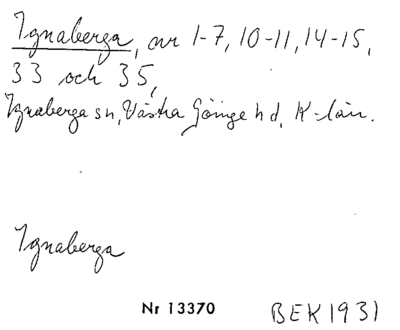 Ignaberga, nr 1-7, 10-11, 14-15,
33 och 35,
Ignaberga sn, Västra Göinge hd, K-län.
Ignaberga
Nr 13370 BEK 1931